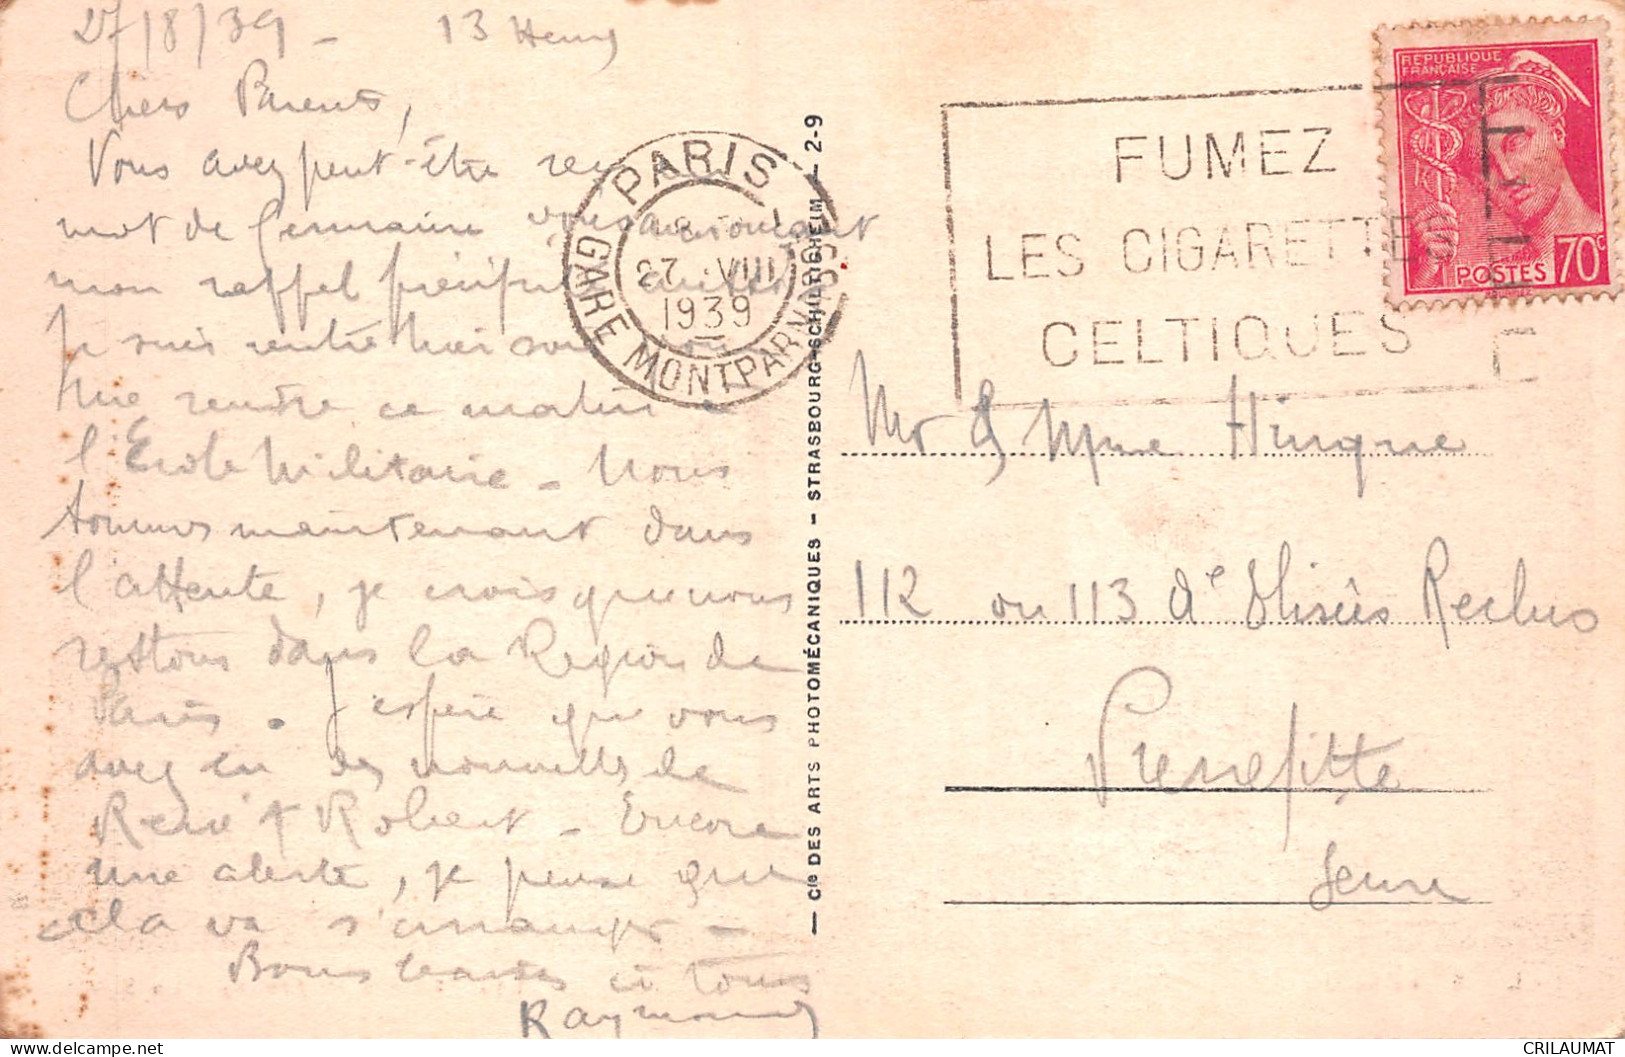 27/8/39 - 13 Heures
Chers Parents,
Vous avez peut-être reçu
mot de Germaine vous annonçant
mon rappel précipité
Je suis rentré hier soir
me rendre ce matin à
l'Ecole Militaire - Nous
sommes maintenant dans
l'attente, je crois que nous
restons dans la Region de
Paris. J'espère que vous
avez eu des nouvelles de
René & Robert - Encore
une alerte, je pense que
cela va s'arranger -
Bons baisers à tous
Raymond
PARIS
GARE MONTPARNASSE
27 VIII
1939
— Cie DES ARTS PHOTOMÉCANIQUES - STRASBOURG-SCHILTIGHEIM — 2-9
FUMEZ
LES CIGARETTES
CELTIQUES
REPUBLIQUE
FRANÇAISE
POSTES 70c
Mr & Mme Hinque
112 ou 113 Elisées Reclus
Pierrefitte
Seine
CRILAUMAT